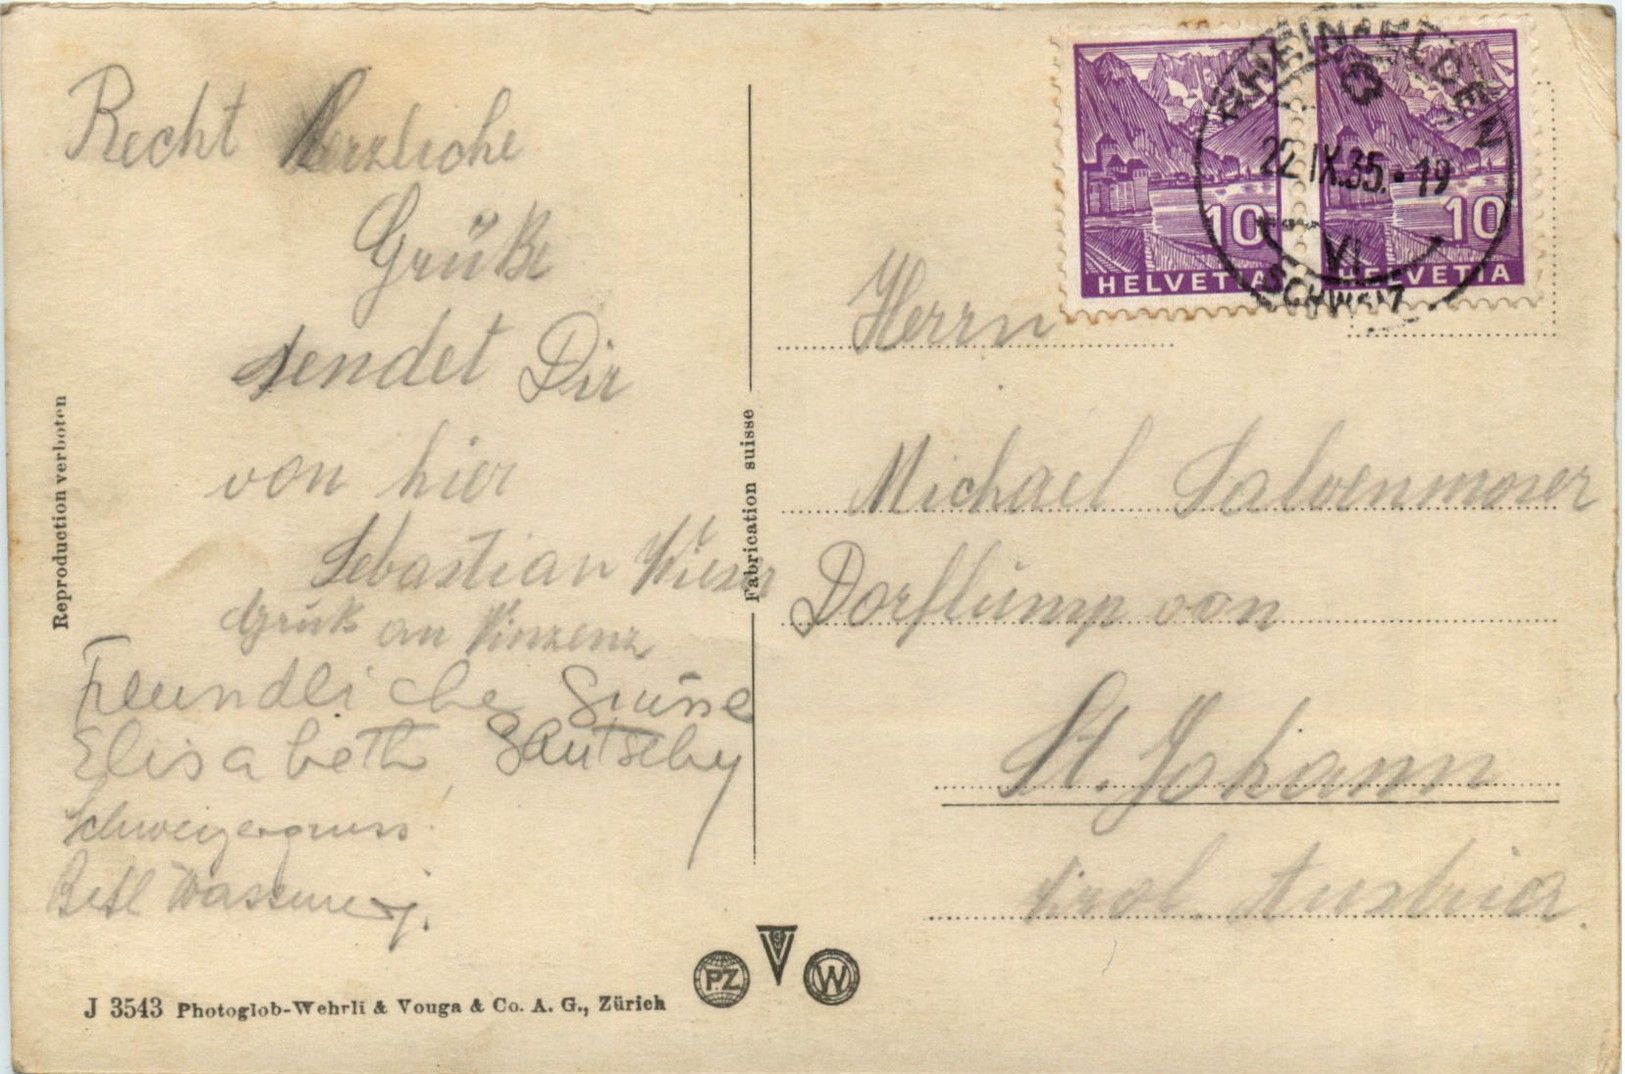 Recht herzliche
Grüße
sendet Dir
von hier
Sebastian Wieser
Gruß an Vinzenz
Freundliche Grüsse
Elisabeth
Schweizergruss
HELVETIA 10
HELVETIA 10
RHEINFELDEN
22.IX.35.-19
VI
SCHWEIZ
Herrn
Michael Salvenmoser
Dorflump von
St. Johann
Tirol. Austria
Reproduction verboten
Fabrication suisse
PZ V W
J 3543 Photoglob-Wehrli & Vouga & Co. A. G., Zürich